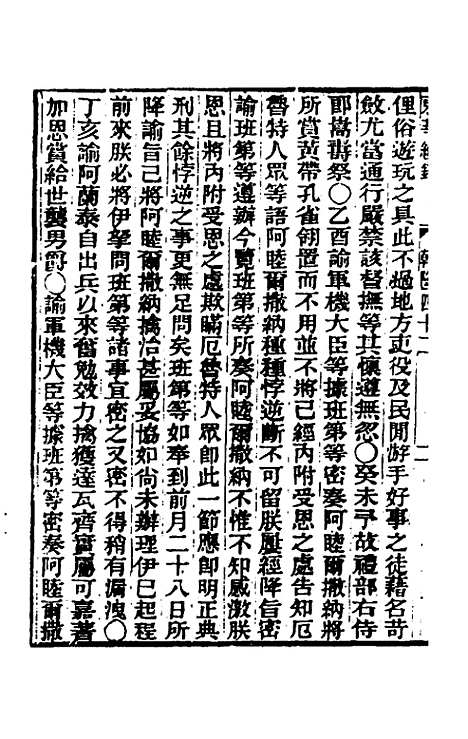 俚俗遊玩之具此不過地方吏役及民閒游手好事之徒藉名苛
斂尤當通行嚴禁該督撫等其懍遵無忽〇癸未予故禮部右侍
郎嵩壽祭〇乙酉諭軍機大臣等據班第等密奏阿睦爾撒納將
所賞黃帶孔雀翎置而不用並不將已經內附受恩之處告知厄
魯特人眾等語阿睦爾撒納種種悖逆斷不可留朕屢經降旨密
諭班第等遵辦今覽班第等所奏阿睦爾撒納不惟不知感激朕
恩且將內附受恩之處欺瞞厄魯特人眾卽此一節應卽明正典
刑其餘悖逆之事更無足問矣班第等如奉到前月二十八日所
降諭旨已將阿睦爾撒納擒治甚屬妥協如尚未辦理伊已起程
前來朕必將伊拏問班第等諸事宜密之又密不得稍有漏洩〇
丁亥諭阿蘭泰自出兵以來奮勉效力擒獲達瓦齊實屬可嘉著
加恩賞給世襲男爵〇諭軍機大臣等據班第等密奏阿睦爾撒